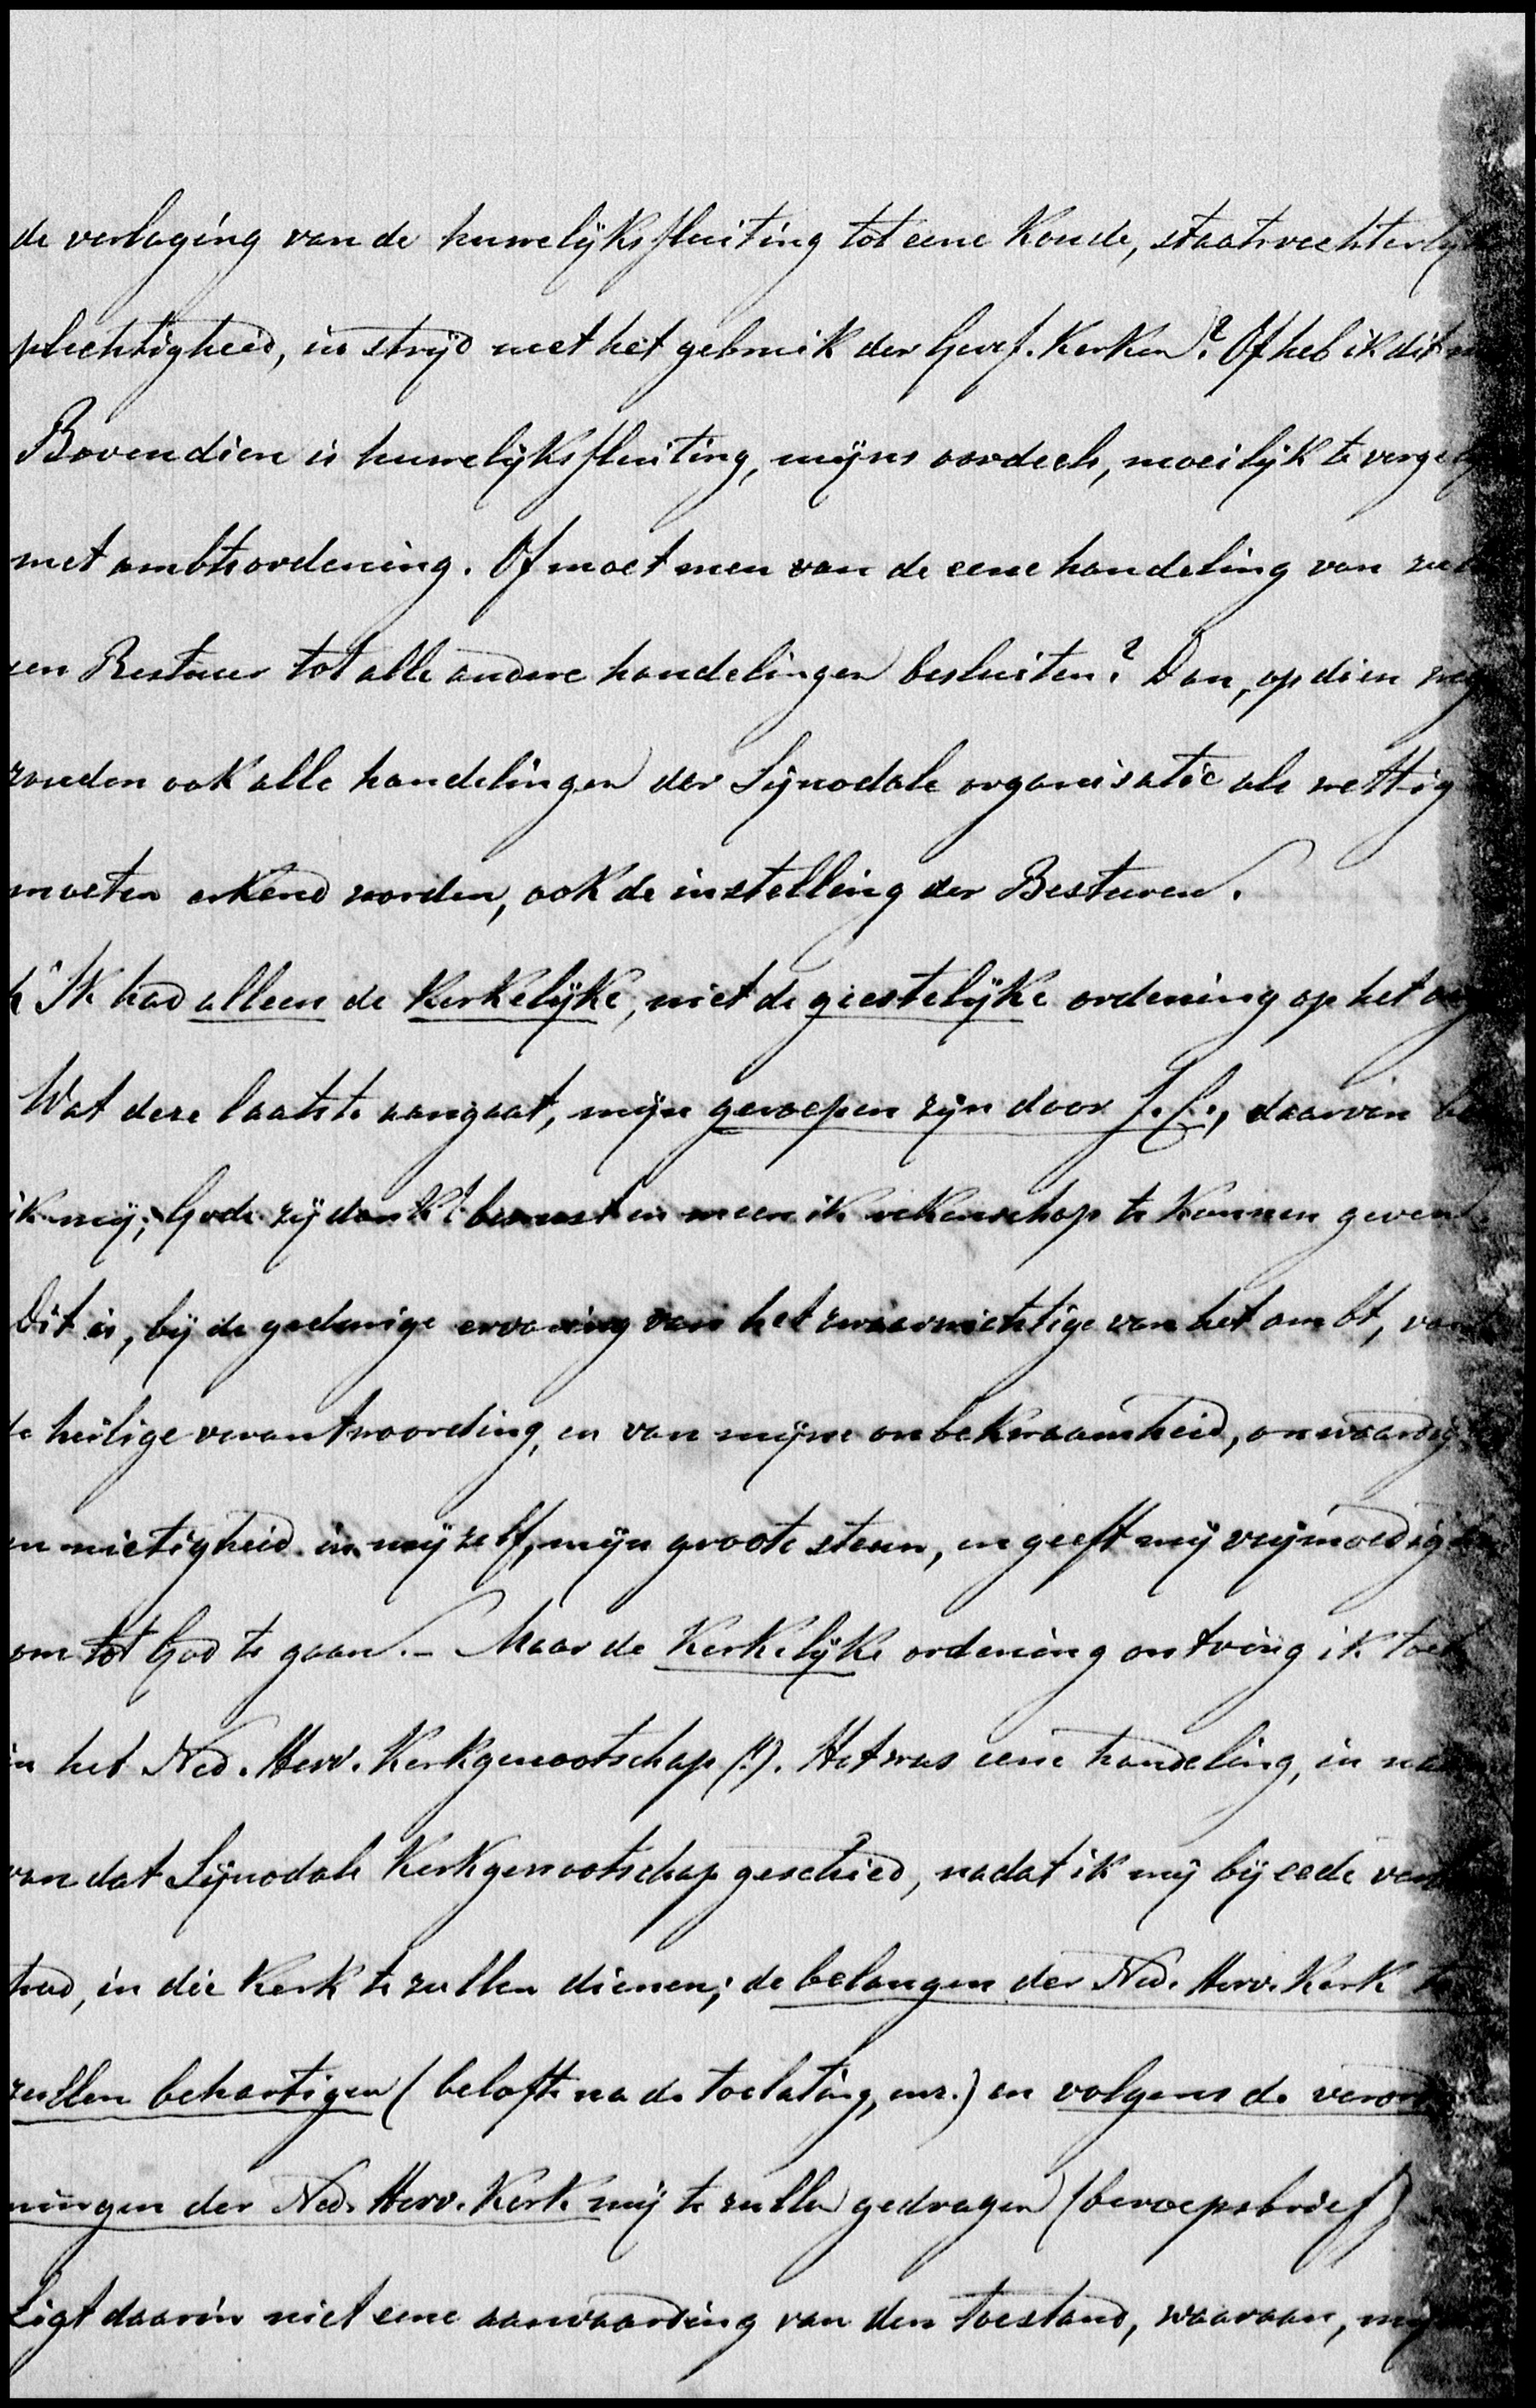 de verlaging van de huwelijkssluiting tot eene koude, staatsrechterlijke
plechtigheid, in strijd met het gebruik der Geref. Kerken? Of heb ik dit
Bovendien is huwelijkssluiting, mijns oordeels, moeilijk te vergel
met ambtsordening. Of moet men van de eene handeling van
een Bestuur tot alle andere handelingen besluiten? Dan, op dien weg
zouden ook alle handelingen der Synodale organisatie als wettig
moeten erkend worden, ook de instelling der Besturen.
Ik had alleen de Kerkelijke, niet de geestelijke ordening op het oog
Wat deze laatste aangaat, mijn geroepen zijn door J.C., daarvan
ik mij, Gode zij dank! bewust en meen ik rekenschap te kunnen geven.
Dit is, bij de gedurige ervaring van het zwaarwichtige van het ambt, van
de heilige verantwoording, en van mijne onbekwaamheid, onwaardig
en nietigheid in mij zelf, mijn groote steun, en geeft mij vrijmoedig
om tot God te gaan. – Maar de Kerkelijke ordening ontving ik toch
in het Ned. Herv. Kerkgenootschap (!). Het was eene handeling, in
van dat Synodale Kerkgenootschap geschied, nadat ik mij bij eede
had, in die Kerk te zullen dienen; de belangen der Ned. Herv. Kerk te
zullen behartigen (belofte na de toelating, enz.) en volgens de verord
ningen der Ned. Herv. Kerk mij te zullen gedragen (beroepsbrief)
Ligt daarin niet eene aanvaarding van den toestand, waaraan,